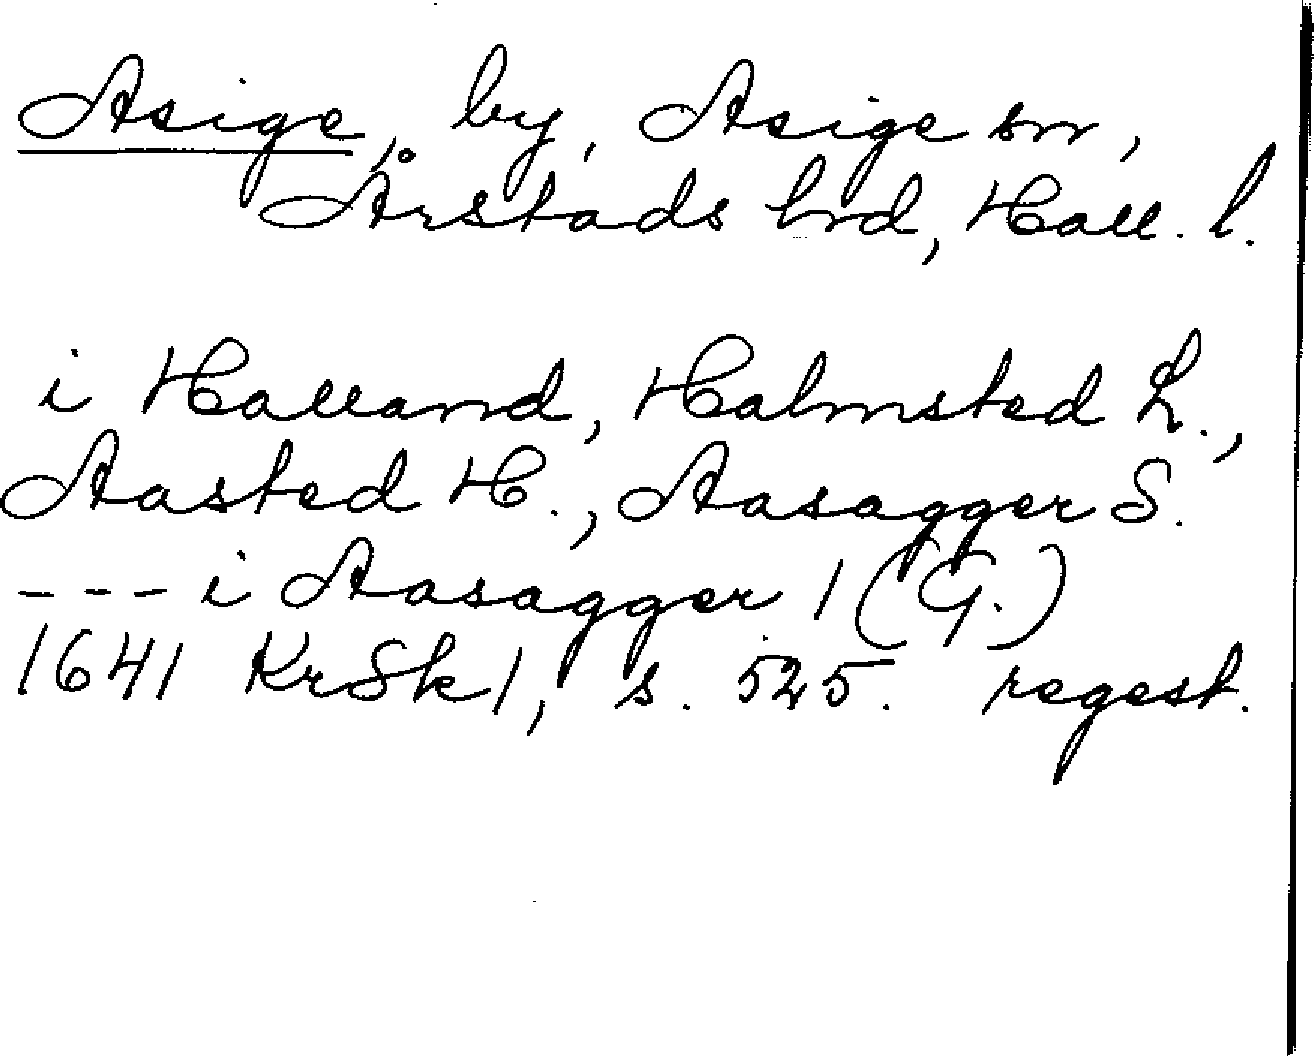 Asige, by, Asige sn,
Årstads hrd, Hall. l.
i Halland, Halmsted L.,
Aasted H., Aasagger S.
--- i Aasagger 1 (G.)
1641 KrSk 1, s. 525. regest.